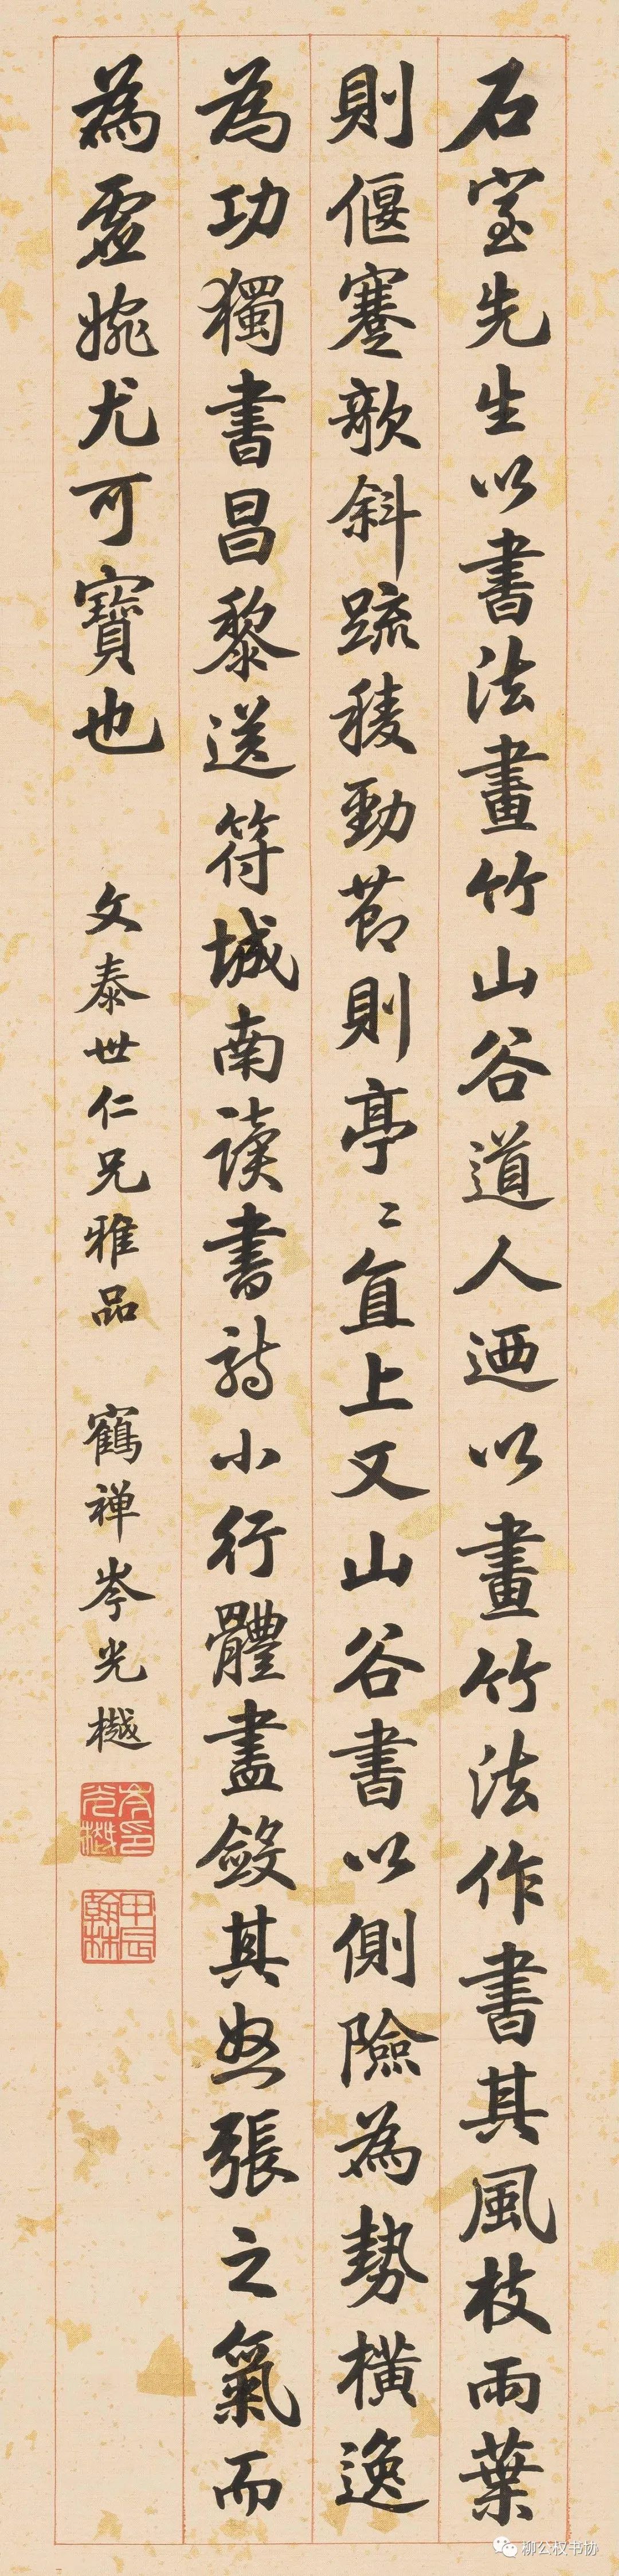 石室先生以書法畫竹山谷道人迺以畫竹法作書其風枝雨葉
則偃蹇欹斜疏稜勁節則亭〻直上又山谷書以側險為勢橫逸
為功獨書昌黎送符城南讀書詩小行體盡斂其怒張之氣而
為虛婉尤可寶也
文泰世仁兄雅品
鶴禅岑光樾
岑光樾印
甲辰翰林
柳公权书协